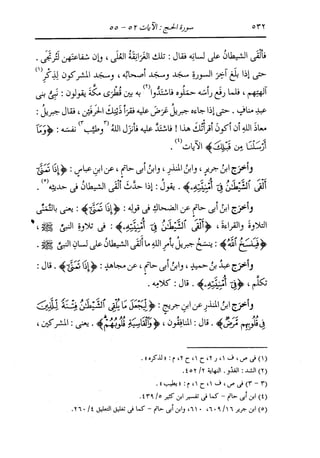 ٥٣٢ سورة الحج: الآيات ٥٢ - ٥٥
فألقى الشيطانُ على لسانِه فقال : تلك الغَرانِقةُ العُلَى ، وإن شفاعتَهن لتُرتَجى .
حتى إذا بلَغ آخِرَ السورةِ سجَد وسجَد أصحابُه ، وسجَد المشركون لذِكْرِ(١)
آلهتِهم ، فلما رفَع رأسَه حمَلوه فاشتدُّوا(٢) به بين قُطْرَى مكةَ يقولون : نبيُّ بنى
عبدِ منافٍ . حتى إذا جاءه جبريلُ عرَض عليه فقرَأ ذَيْنِك الحرفَيْن ، فقال جبريلُ :
معاذَ اللهِ أن أكونَ أقرَأتُك هذا ! فاشتدَّ عليه فأنزَل اللهُ (٣وطيَّب٣) نفسَه : ﴿وَمَآ
أَرْسَلْنَا مِن قَبْلِكَ﴾ الآيات(٤) .
وأخرَج ابنُ جريرٍ ، وابنُ المنذرِ ، وابنُ أبى حاتمٍ ، عن ابنِ عباسٍ : ﴿إِذَا تَمَنَّىٰٓ
أَلْقَى ٱلشَّيْطَٰنُ فِىٓ أُمْنِيَّتِهِۦ﴾ . يقولُ : إذا حدَّث ألقَى الشيطانُ فى حديثِه(٥) .
وأخرَج ابنُ أبى حاتمٍ عن الضحاكِ فى قولِه : ﴿إِذَا تَمَنَّىٰٓ﴾ : يعنى بالتَّمنِّى
التلاوةَ والقراءةَ ، ﴿أَلْقَى ٱلشَّيْطَٰنُ فِىٓ أُمْنِيَّتِهِۦ﴾ : فى تلاوةِ النبىِّ ﷺ ،
﴿فَيَنسَخُ ٱللَّهُ﴾ : ينسَخُ جبريلُ بأمرِ اللهِ ما ألقَى الشيطانُ على لسانِ النبىِّ ﷺ .
وأخرَج عبدُ بنُ حميدٍ ، وابنُ أبى حاتمٍ ، عن مجاهدٍ : ﴿إِذَا تَمَنَّىٰٓ﴾ . قال :
تكلَّم ، ﴿فِىٓ أُمْنِيَّتِهِۦ﴾ . قال : كلامِه .
وأخرَج ابنُ المنذرِ عن ابنِ جريجٍ : ﴿لِّيَجْعَلَ مَا يُلْقِى ٱلشَّيْطَٰنُ فِتْنَةً لِّلَّذِينَ
فِى قُلُوبِهِم مَّرَضٌ﴾ . قال : المنافقون ، ﴿وَٱلْقَاسِيَةِ قُلُوبُهُمْ﴾ . يعنى : المشركين ،
(١) فى ص ، ف ١ ، ر ٢ ، ح ١ ، ح ٢ ، م : «لذكره» .
(٢) الشد : العَدْو . النهاية ٢/ ٤٥٢ .
(٣ - ٣) فى ص ، ف ١ ، ح ١ ، م : «يطيب» .
(٤) ابن أبى حاتم - كما فى تفسير ابن كثير ٥/ ٤٣٩ .
(٥) ابن جرير ١٦/ ٦٠٩ ، ٦١٠ ، وابن أبى حاتم - كما فى تغليق التعليق ٤/ ٢٦٠ .